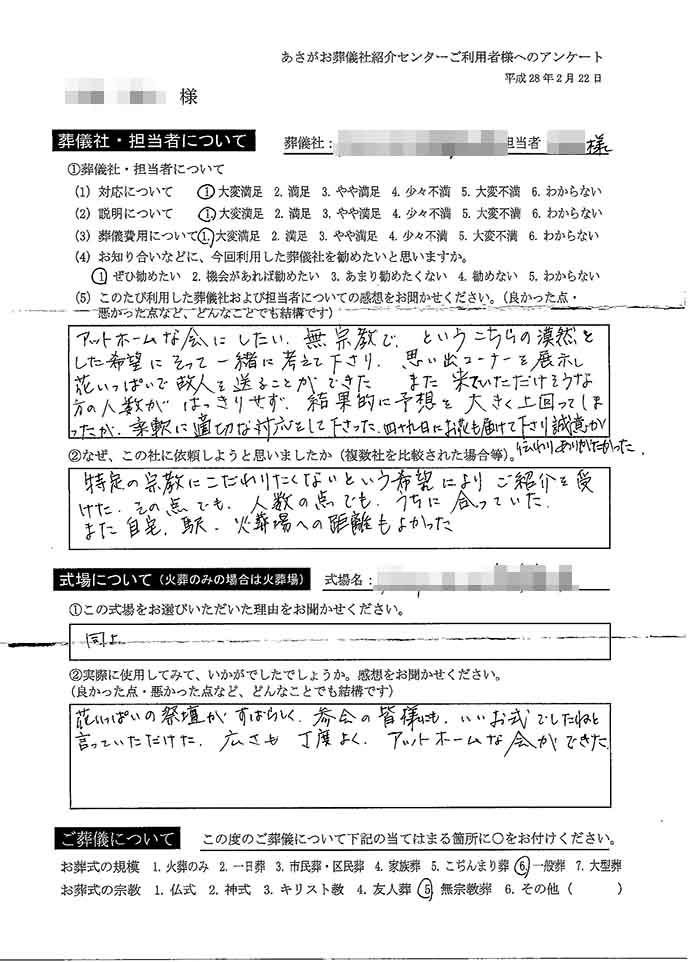 あさがお葬儀社紹介センターご利用者様へのアンケート
平成28年2月22日
様
葬儀社・担当者について 葬儀社: 担当者 様
①葬儀社・担当者について
(1) 対応について ①大変満足 2. 満足 3. やや満足 4. 少々不満 5. 大変不満 6. わからない
(2) 説明について ①大変満足 2. 満足 3. やや満足 4. 少々不満 5. 大変不満 6. わからない
(3) 葬儀費用について ①大変満足 2. 満足 3. やや満足 4. 少々不満 5. 大変不満 6. わからない
(4) お知り合いなどに、今回利用した葬儀社を勧めたいと思いますか。
① ぜひ勧めたい 2. 機会があれば勧めたい 3. あまり勧めたくない 4. 勧めない 5. わからない
(5) このたび利用した葬儀社および担当者についての感想をお聞かせください。(良かった点・
悪かった点など、どんなことでも結構です)
アットホームな会にしたい、無宗教で、というこちらの漠然と
した希望にそって一緒に考えて下さり、思い出コーナーを展示し
花いっぱいで故人を送ることができた また来ていただけそうな
方の人数がはっきりせず、結果的に予想を大きく上回ってしま
ったが、柔軟に適切な対応をして下さった。四十九日にお花も届けて下さり誠意が
伝わりありがたかった。
②なぜ、この社に依頼しようと思いましたか(複数社を比較された場合等)。
特定の宗教にこだわりたくないという希望によりご紹介を受
けた。その点でも、人数の点でも、うちに合っていた。
また自宅、駅、火葬場への距離もよかった
式場について(火葬のみの場合は火葬場) 式場名:
①この式場をお選びいただいた理由をお聞かせください。
同上
②実際に使用してみて、いかがでしたでしょうか。感想をお聞かせください。
(良かった点・悪かった点など、どんなことでも結構です)
花いっぱいの祭壇がすばらしく、参会の皆様にも、いいお式でしたねと
言っていただけた。広さも丁度よく、アットホームな会ができた
ご葬儀について この度のご葬儀について下記の当てはまる箇所に○をお付けください。
お葬式の規模 1. 火葬のみ 2. 一日葬 3. 市民葬・区民葬 4. 家族葬 5. こぢんまり葬 ⑥一般葬 7. 大型葬
お葬式の宗教 1. 仏式 2. 神式 3. キリスト教 4. 友人葬 ⑤ 無宗教葬 6. その他( )